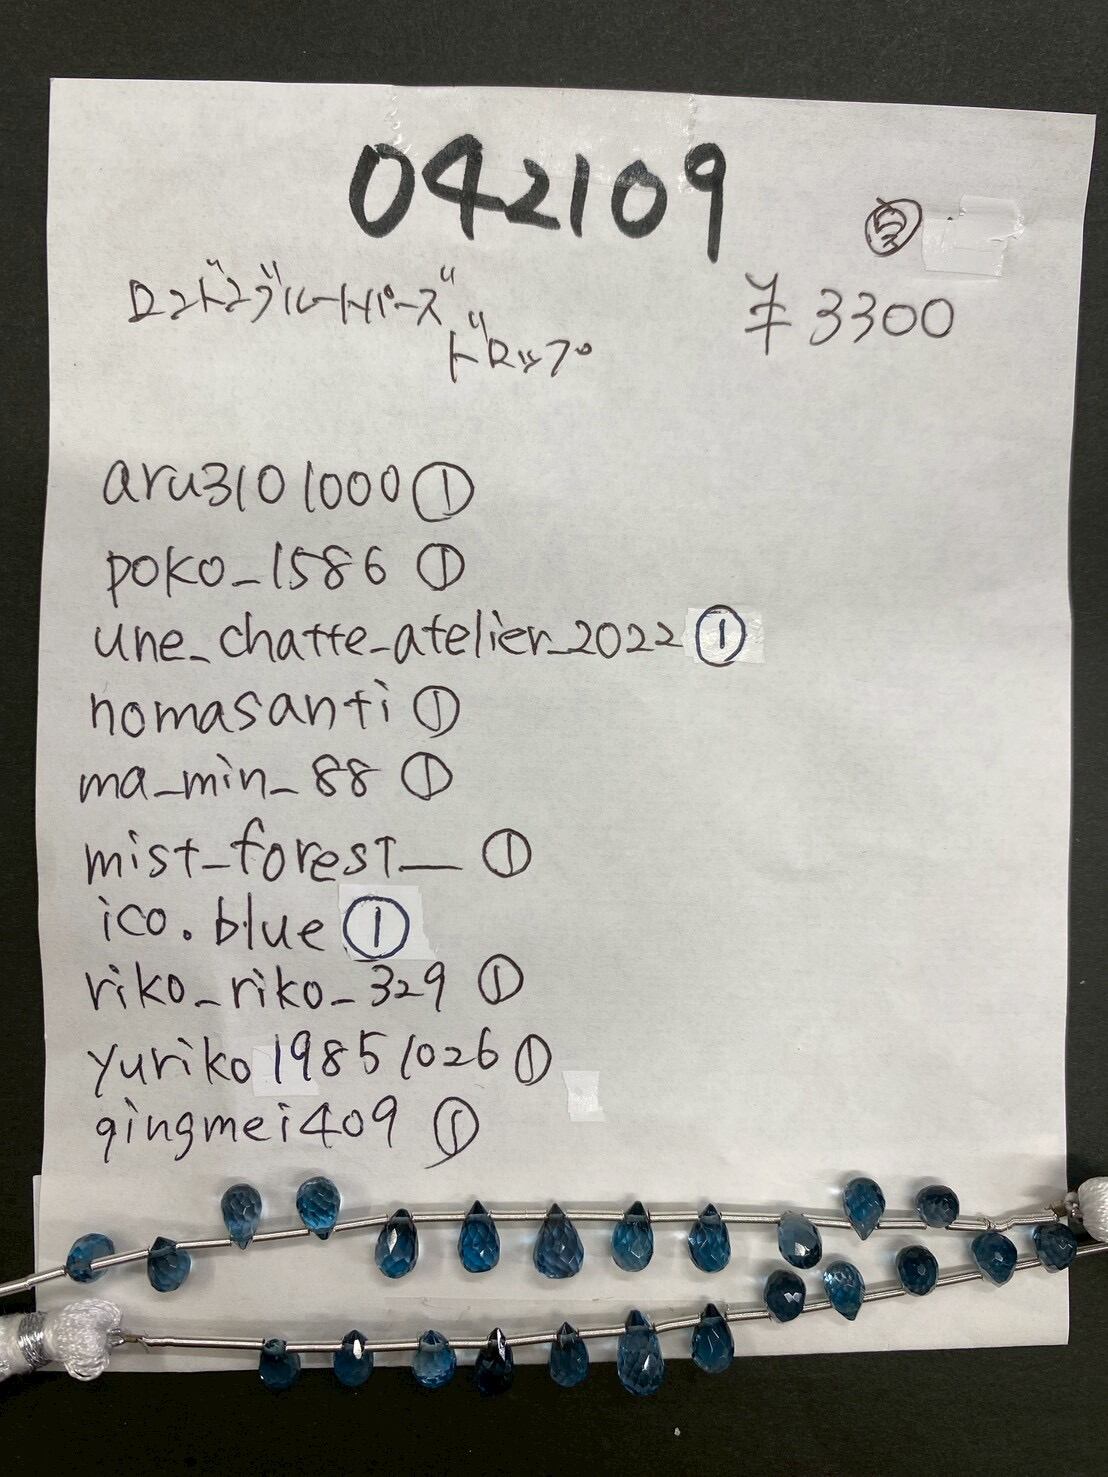 042109
ロンドンブルートパーズ
ドロップ
¥3300
aru3101000①
poko_1586 ①
une_chatte_atelier_2022①
nomasanti ①
ma_min_88 ①
mist_forest__ ①
ico.blue ①
riko_riko_329 ①
yuriko19851026①
qingmei409 ①